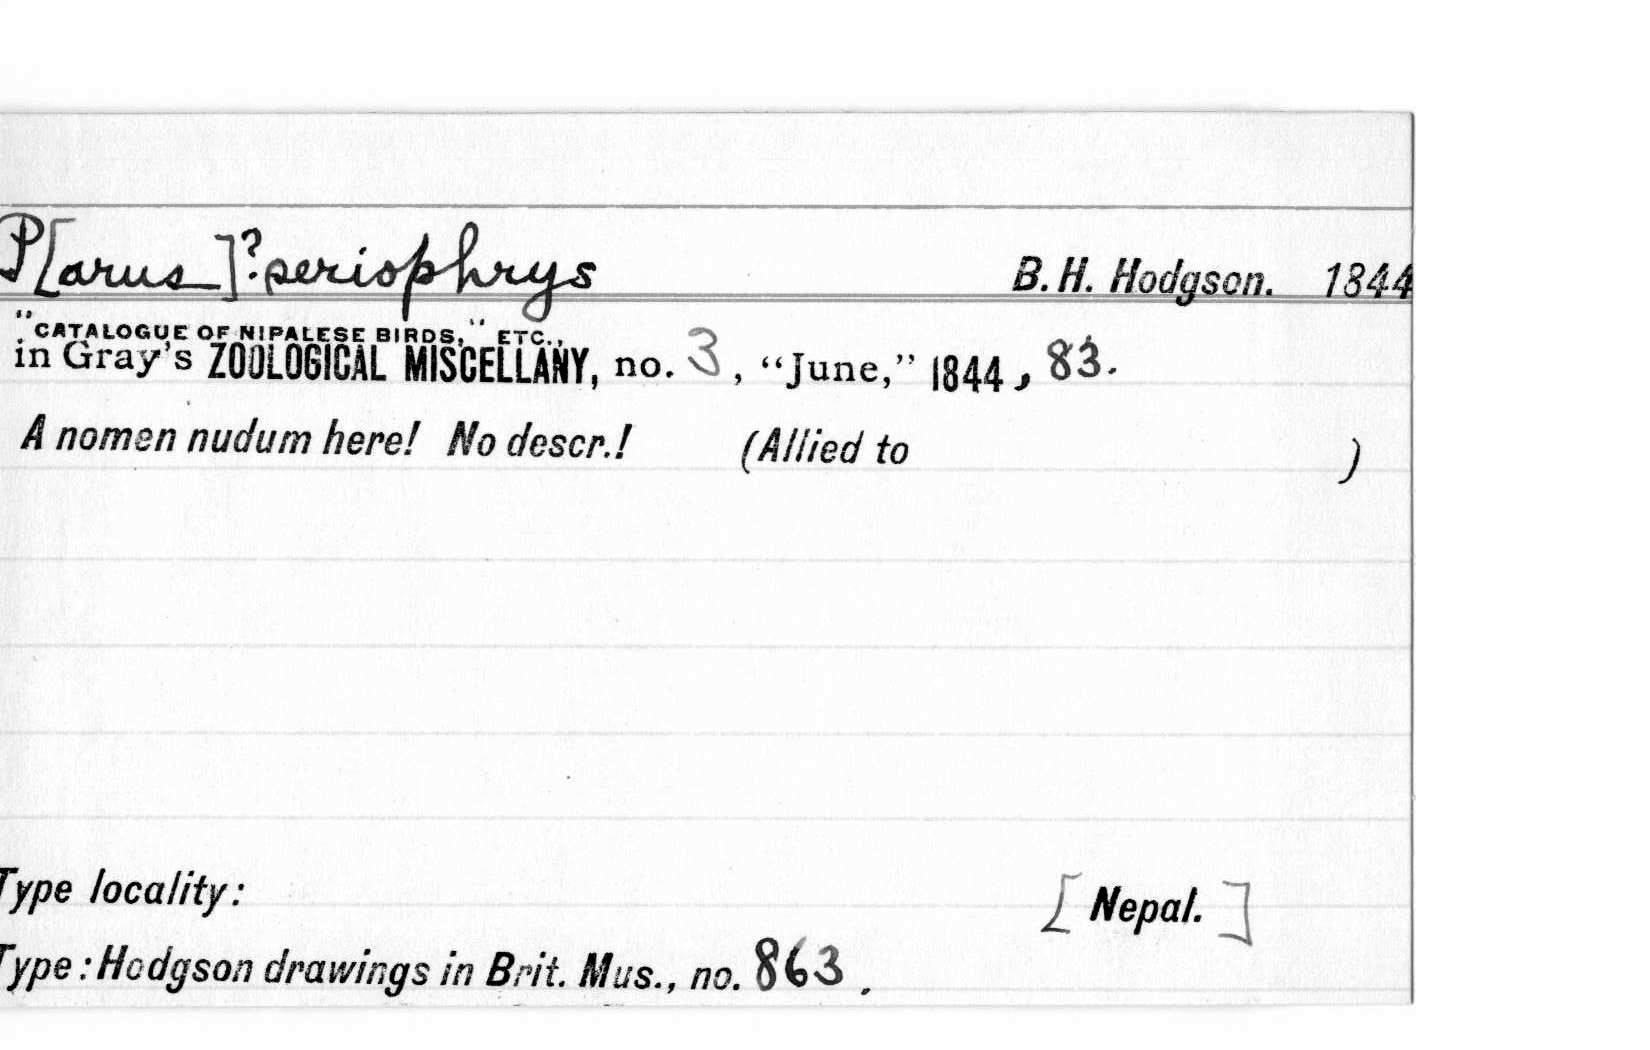 P[arus]? seriophrys B. H. Hodgson. 1844
"CATALOGUE OF NIPALESE BIRDS," ETC.,
in Gray's ZOOLOGICAL MISCELLANY, no. 3, "June," 1844, 83.
A nomen nudum here! No descr.! (Allied to )
Type locality: [Nepal.]
Type: Hodgson drawings in Brit. Mus., no. 863.